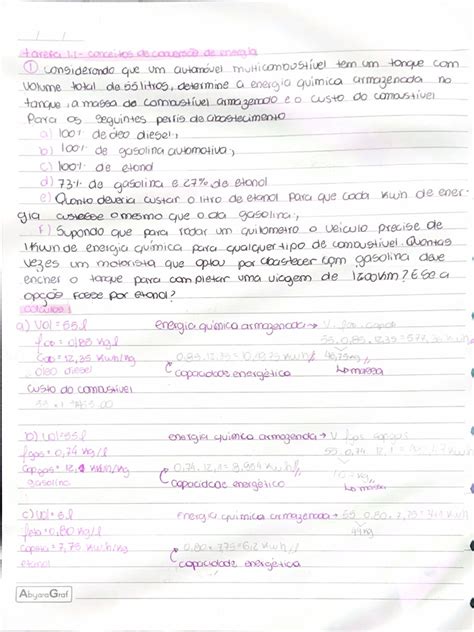 tarefa 1.1 - conceitos de conversão de energia
① considerando que um automóvel multicombustível tem um tanque com
volume total de 55 litros, determine a energia química armazenada no
tanque, a massa de combustível armazenado e o custo do combustível
Para os seguintes perfis de abastecimento
a) 100% de óleo diesel;
b) 100% de gasolina automotiva;
c) 100% de etanol
d) 73% de gasolina e 27% de etanol
e) Quanto deveria custar o litro de etanol para que cada Kwh de ener-
gia custasse o mesmo que o da gasolina;
f) Supondo que para rodar um quilometro o veiculo precise de
1Kwh de energia química para qualquer tipo de combustível. Quantas
vezes um motorista que optou por abastecer com gasolina deve
encher o tanque para completar uma viagem de 1200km? E se a
opção fosse por etanol?
calculos:
a) Vol = 55l energia química armazenada →
= 0,85 kg/l 55.0,85.12,35 =
= 12,35 Kwh/kg 0,85.12,35 = 46,75kg
óleo diesel capacidade energética massa
custo do combustível
b) Vol = 55l energia química armazenada →
= 0,74 kg/l
= 12,1 Kwh/kg 0,74.12,1 = 8,954 Kwh/l
gasolina capacidade energética massa
c) Vol = energia química armazenada →
= 0,80 kg/l 44kg
= 7,75 Kwh/kg 0,80 . 7,75 = 6,2 Kwh/l
etanol capacidade energética
AbyaraGraf